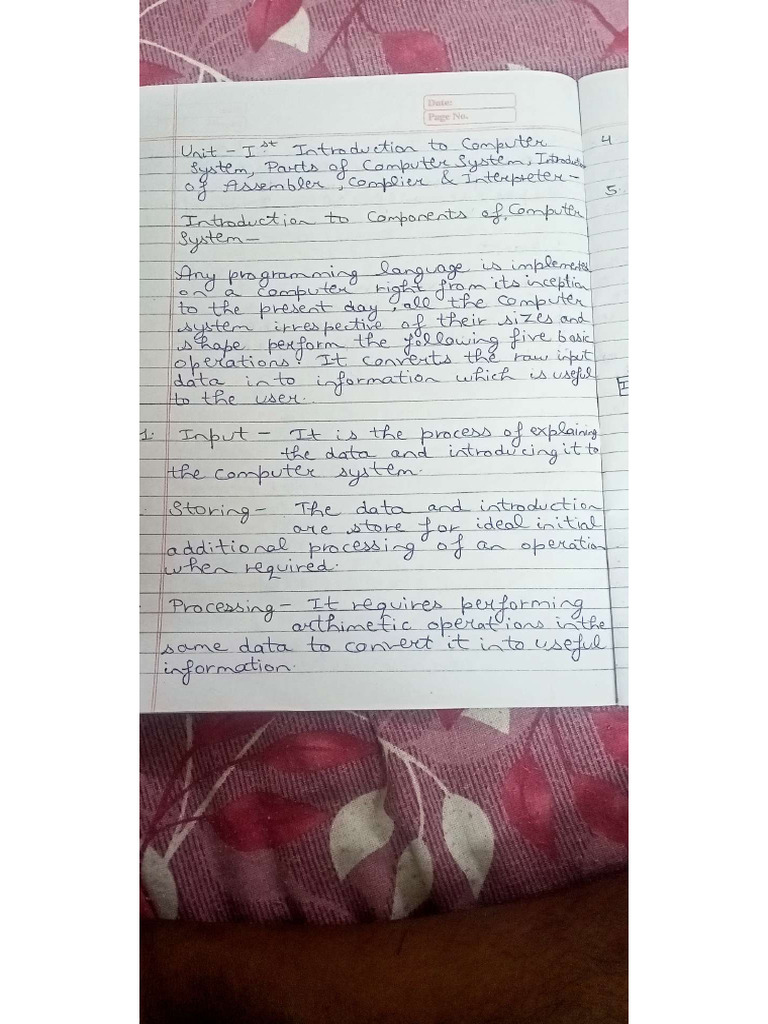 Date:
Page No.
Unit - Ist Introduction to Computer
System, Parts of Computer System, Introduc
of Assembler, Complier & Interpreter -
Introduction to Components of Computer
System -
Any programming language is implemented
on a computer right from its inception
to the present day, all the computer
system irrespective of their sizes and
shape perform the following five basic
operations. It converts the raw input
data in to information which is useful
to the user.
1. Input - It is the process of explaining
the data and introducing it to
the computer system.
Storing - The data and introduction
are store for ideal initial
additional processing of an operation
when required.
Processing - It requires performing
arthimetic operations in the
same data to convert it in to useful
information.
4
5.